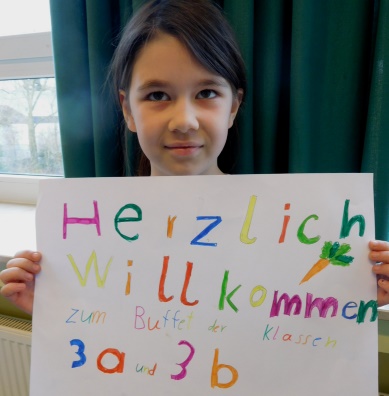 Herzlich
Willkommen
zum Buffet der Klassen
3a und 3b